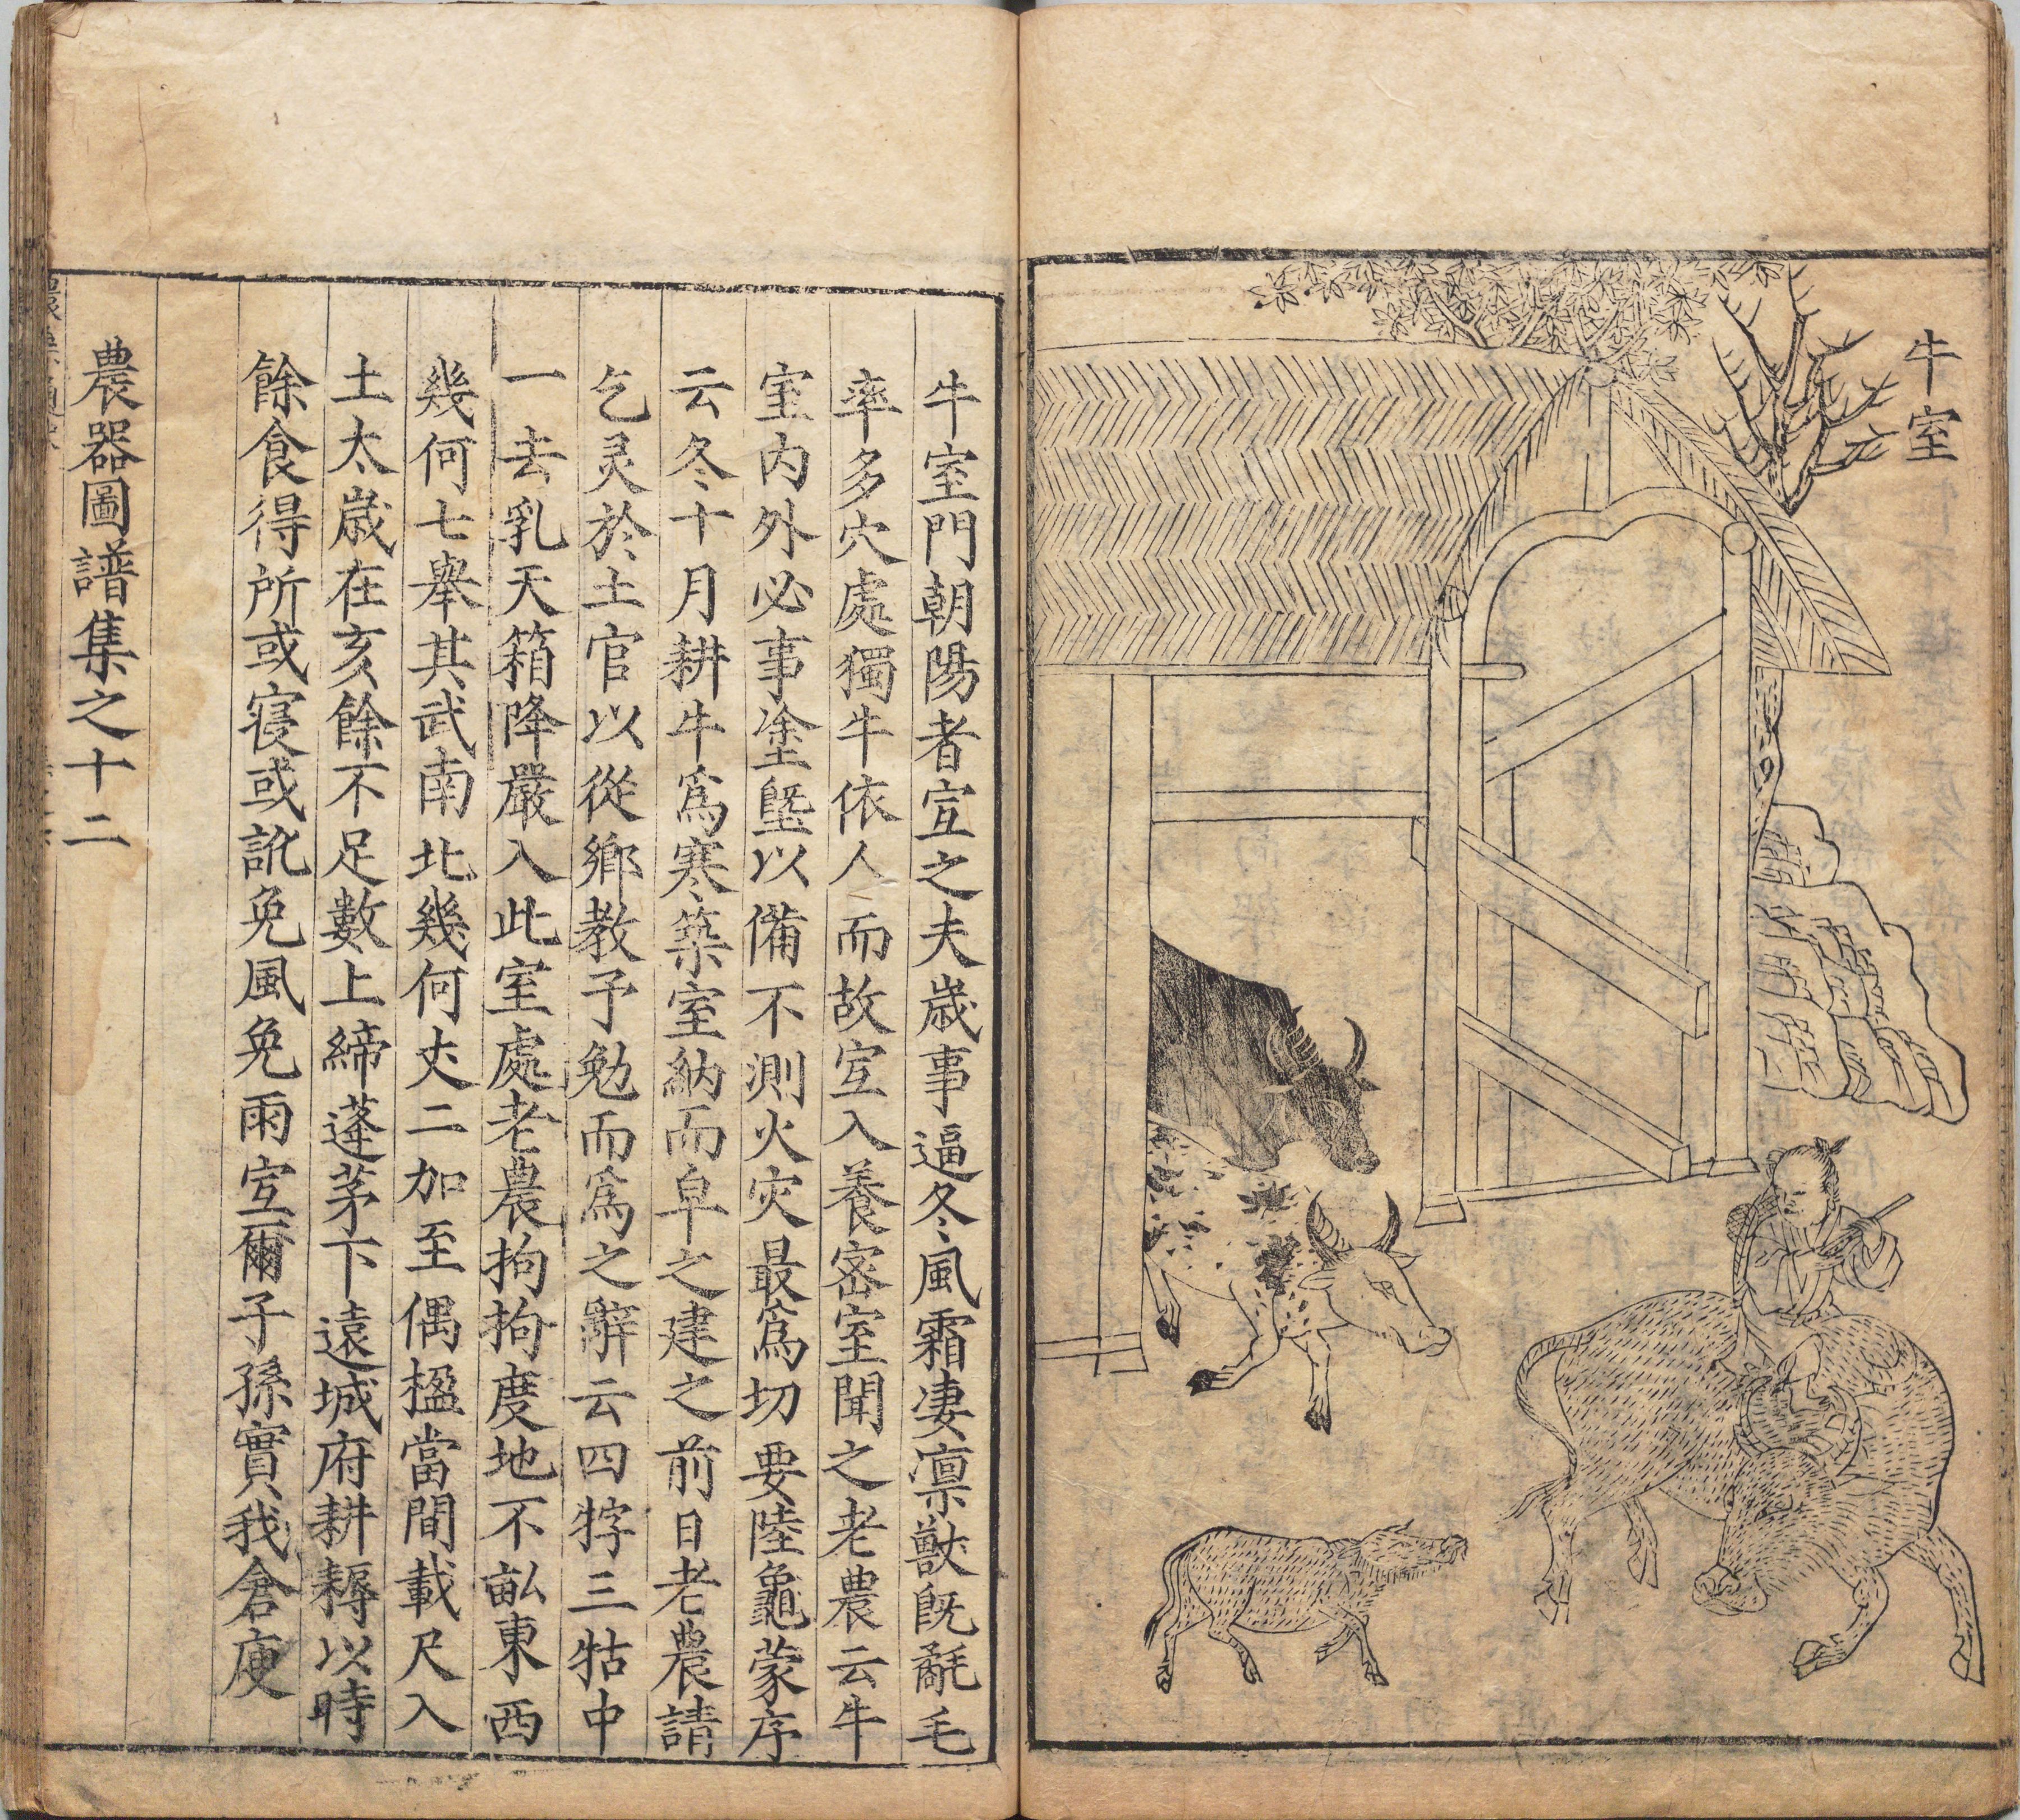 牛室
牛室門朝陽者宜之夫歳事逼冬風霜凄凛獸旣氄毛
率多穴處獨牛依人而故宜入養宻室聞之老農云牛
室内外必事塗塈以備不測火灾最爲切要陸龜蒙序
云冬十月耕牛爲寒築室納而皁之建之前日老農請
乞灵於土官以從鄉教予勉而爲之辭云四牸三牯中
一去乳天箱降嚴入此室處老農拘拘度地不畆東西
幾何七舉其武南北幾何丈二加至偶楹當間載尺入
土太歳在亥餘不足數上締蓬茅下遠城府耕耨以時
餘食得所或寢或訛免風免雨宜爾子孫實我倉庾
農器圖譜集之十二